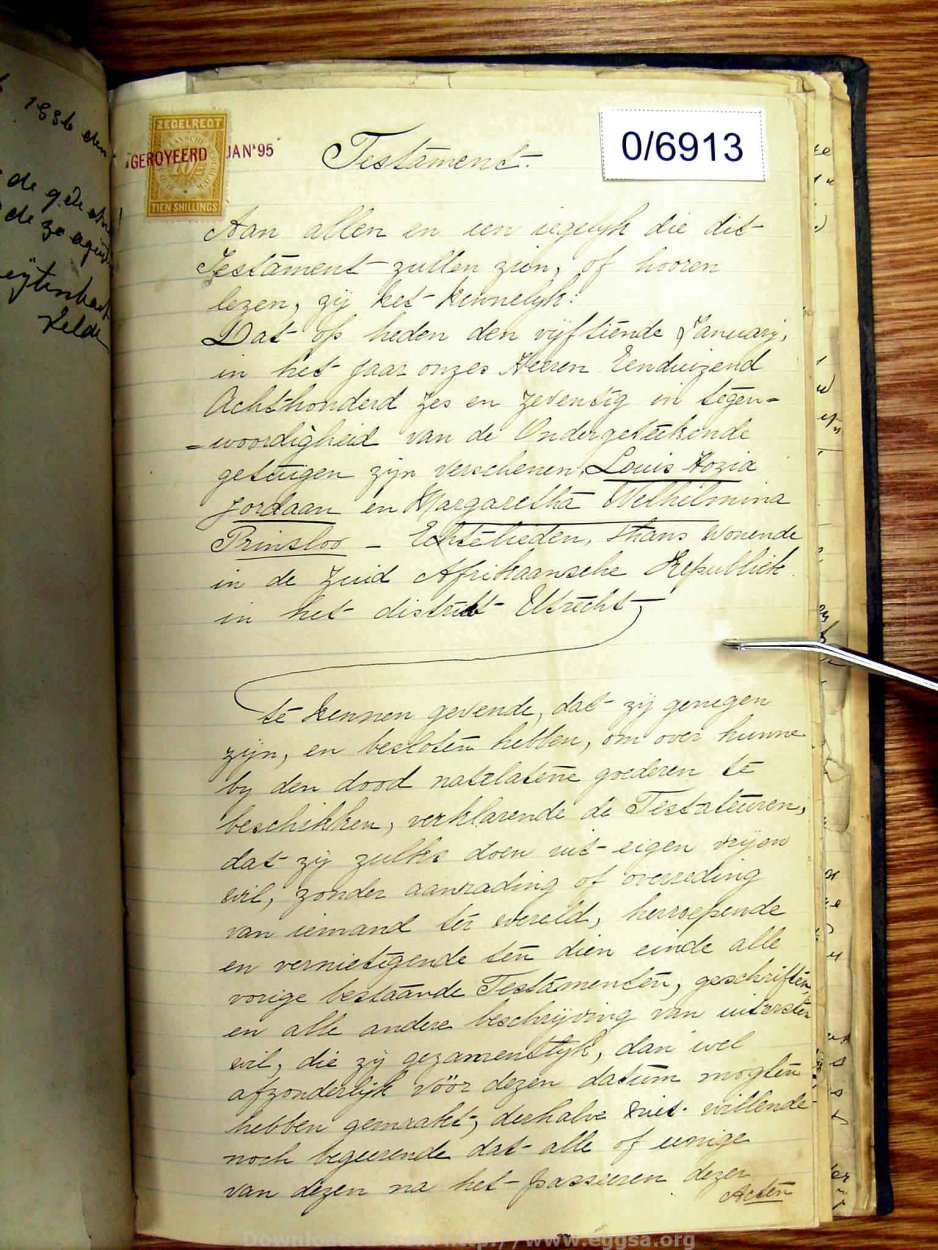 1886
de
de ze
ZEGELREGT
TIEN SHILLINGS
GEROYEERD JAN'95
0/6913
Testament.
Aan allen en een iegelyk die dit
Testament zullen zien, of hooren
lezen, zij het kennelyk:
Dat op heden den vyftiende January,
in het jaar onzes Heeren Eenduizend
Achthonderd Zes en Zeventig in tegen=
=woordigheid van de Ondergeteekende
getuigen zijn verschenen, Louis Hozia
Jordaan en Margaretha Welhelmina
Prinsloo - Echtelieden, thans Wonende
in de Zuid Afrikaansche Republiek
in het district Utrecht
te kennen gevende, dat zij genegen
zijn, en besloten hebben, om over hunne
by den dood natelatene goederen te
beschikken, verklarende de Testateuren,
dat zij zulks doen uit eigen vrijen
wil, zonder aanrading of overreding
van iemand ter wereld, herroepende
en vernietigende ten dien einde alle
vorige bestaande Testamenten, geschriften,
en alle andere beschrijving van uitersten
wil, die zij gezamentlyk, dan wel
afzonderlijk vöör dezen datum mogten
hebben gemaakt, derhalve niet willende
noch begeerende dat alle of eenige
van dezen na het passeren dezer
Acten
Downloaded from http://www.eggsa.org